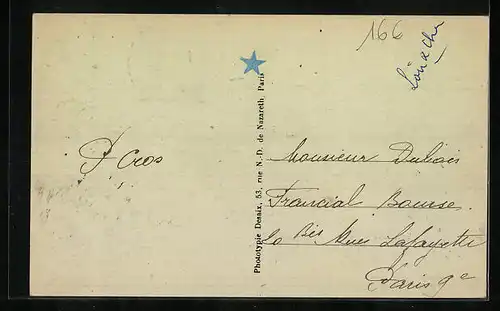 166
Loir & Cher
P. Cros
Phototypie Desaix, 53, rue N.-D. de Nazareth, Paris
Monsieur Dubois
Francial Bourse
10 Bis Rue Lafayette
Paris 9e